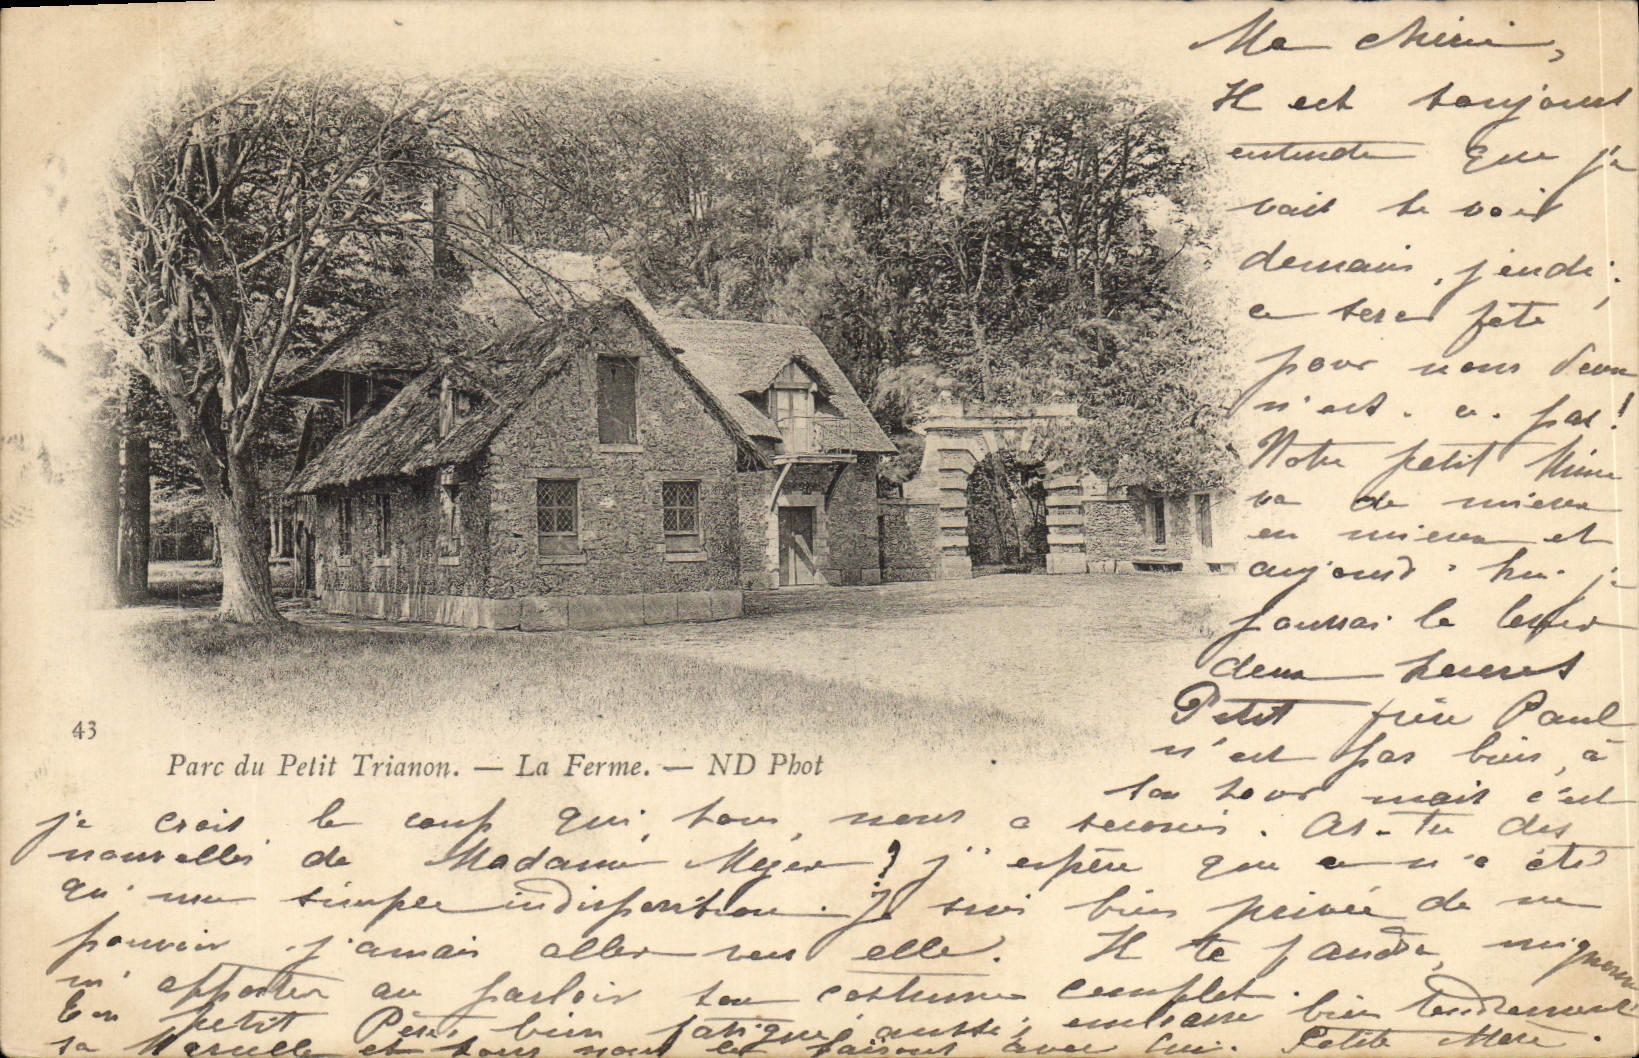 Ma chérie,
Il est toujours
entendu que je
vais te voir
demain, jeudi;
ce sera fête
pour nous deux
n'est-ce-pas!
Notre petit
va de mieux
en mieux et
aujourd'hui je
pourrai le lever
deux heures
Petit frère Paul
n'est pas bien, à
son tour mais c'est
43
Parc du Petit Trianon. — La Ferme. — ND Phot
je crois le coup qui, tous, nous a secoués. As-tu des
nouvelles de Madame Méjer? j'espère que ce n'a été
qu'une simple indisposition. Je suis bien privée de ne
pouvoir jamais aller vers elle. Il te faudra, mignonne
m'apporter au parloir ton costume complet.
Ton petit Père bien fatigué aussi, embrasse bien tendrement
sa Marcelle et tous nous le faisons avec lui. Petite Mère.